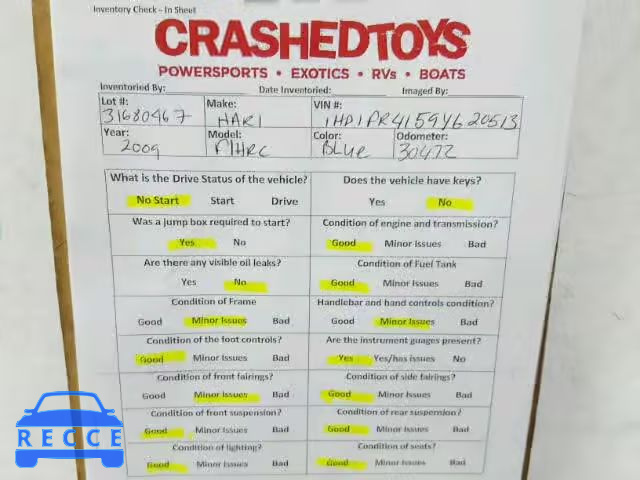 Inventory Check – In Sheet
CRASHEDTOYS
POWERSPORTS • EXOTICS • RVs • BOATS
Inventoried By: Date Inventoried: Imaged By:
Lot #: Make: VIN #:
31680467 HARI 1HD1PR4159Y620513
Year: Model: Color: Odometer:
2009 FlHRC BLUE 30472
What is the Drive Status of the vehicle? Does the vehicle have keys?
No Start Start Drive Yes No
Was a jump box required to start? Condition of engine and transmission?
Yes No Good Minor Issues Bad
Are there any visible oil leaks? Condition of Fuel Tank
Yes No Good Minor Issues Bad
Condition of Frame Handlebar and hand controls condition?
Good Minor Issues Bad Good Minor Issues Bad
Condition of the foot controls? Are the instrument guages present?
Good Minor Issues Bad Yes Yes/has issues No
Condition of front fairings? Condition of side fairings?
Good Minor Issues Bad Good Minor Issues Bad
Condition of front suspension? Condition of rear suspension?
Good Minor Issues Bad Good Minor Issues Bad
Condition of lighting? Condition of seats?
Good Minor Issues Bad Good Minor Issues Bad
RECCE